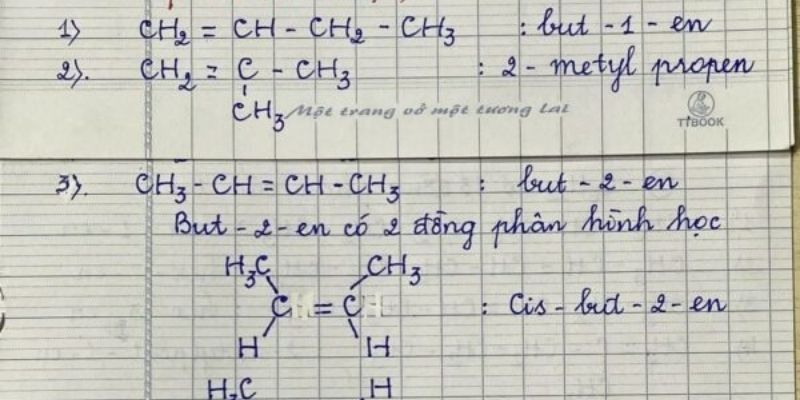 1) CH2 = CH - CH2 - CH3 : but - 1 - en
2). CH2 = C - CH3 : 2 - metyl propen
CH3
Một trang vở một tương lai
TTBOOK
3). CH3 - CH = CH - CH3 : but - 2 - en
But - 2 - en có 2 đồng phân hình học
H3C CH3
C = C : Cis - but - 2 - en
H H
H3C H